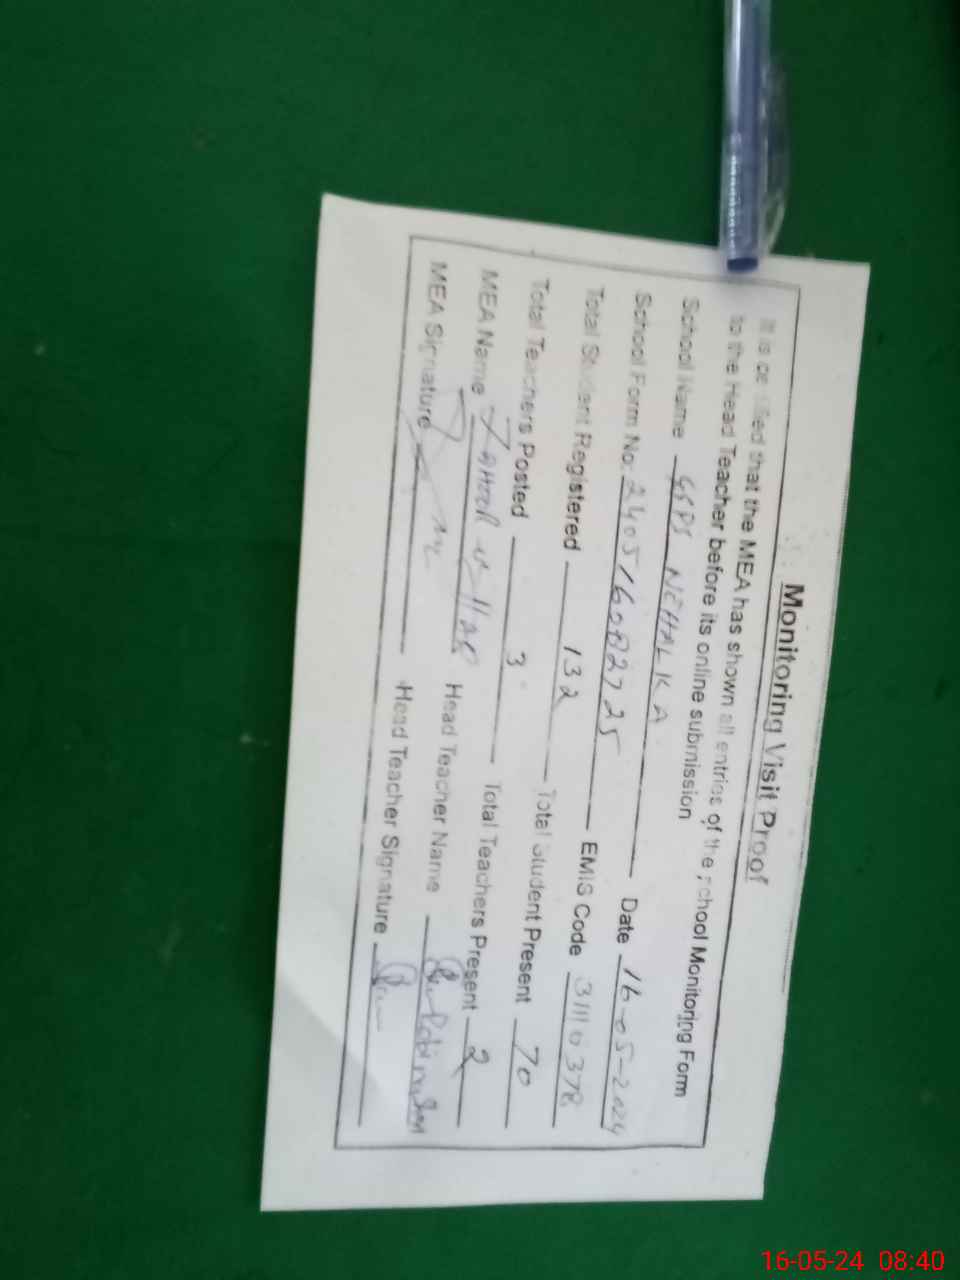 Monitoring Visit Proof
It is certified that the MEA has shown all entries of the school Monitoring Form
to the Head Teacher before its online submission
School Name GSPS NEHALKA Date 16-05-2024
School Form No: 2405160827 25 EMIS Code 31110378
Total Student Registered 132 Total Student Present 70
Total Teachers Posted 3 Total Teachers Present 2
MEA Name Head Teacher Name
MEA Signature Head Teacher Signature
16-05-24 08:40